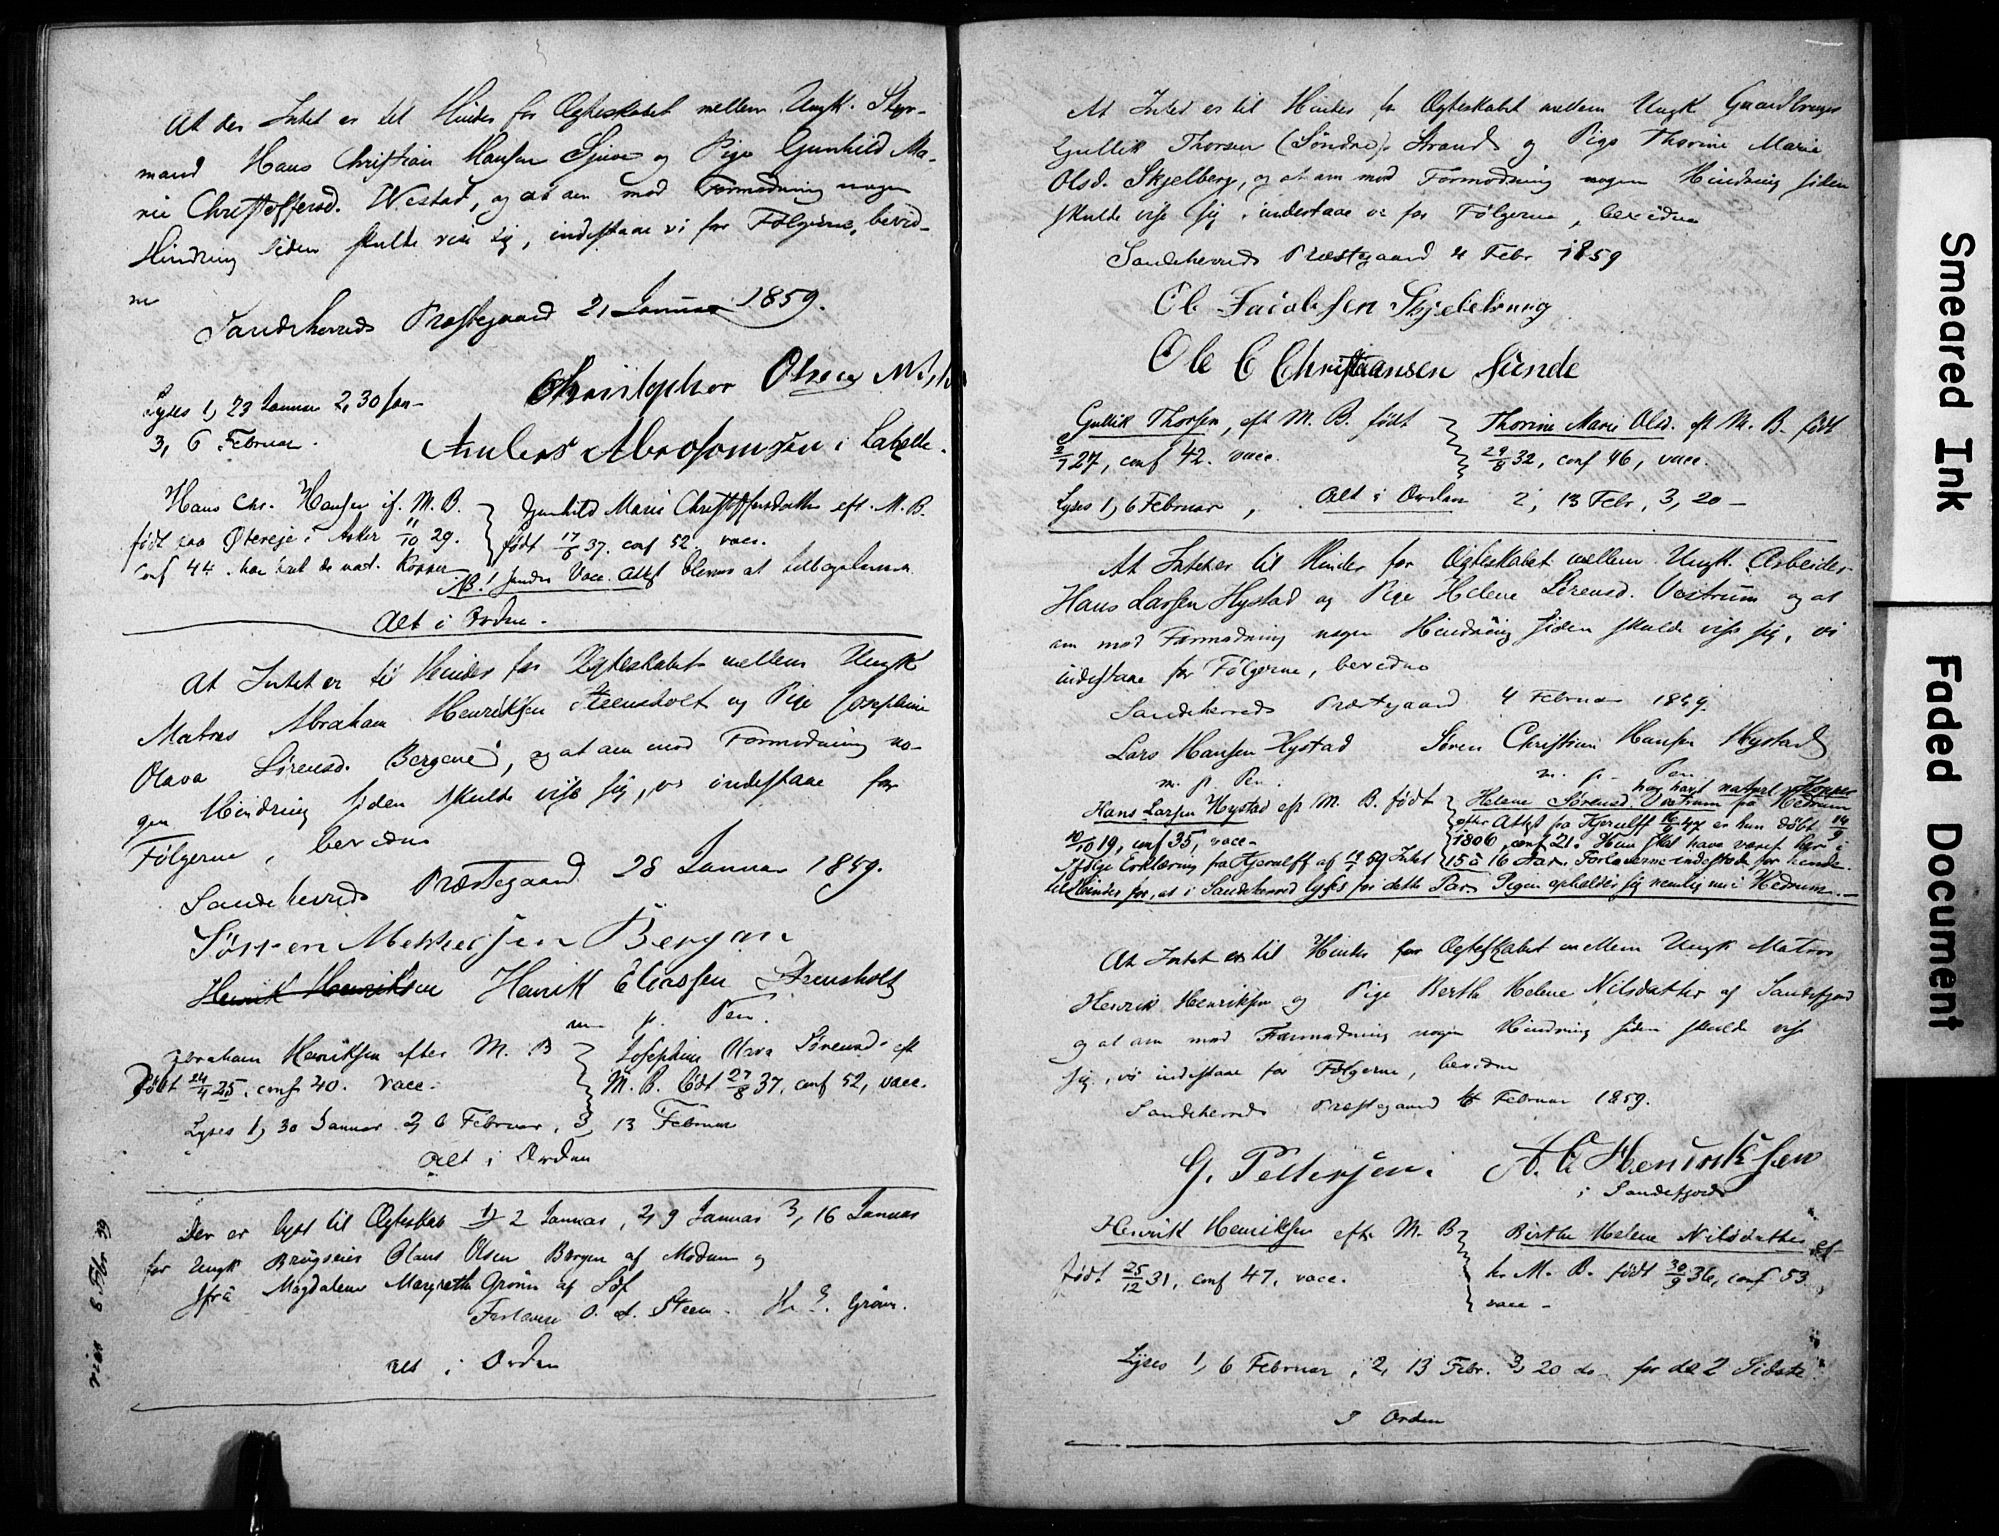 At der Intet er til Hinder for Ægteskabet mellem Ungk. Styr-
mand Hans Christian Hansen og Pige Gunhild Ma-
rie Christoffersd. Westad, og at om mod Formodning nogen
Hindring siden skulde vise sig, indestaae vi for Følgerne, bevid-
ne
Sandeherreds Præstegaard 21 Januar 1859.
Christopher Olsen
Lyses 1, 23 Januar 2, 30 Jan-
3, 6 Februar.
Anders Abrahamsen i
Hans Chr. Hansen if. M. B. Gunhild Marie Christoffersdatter eft. M. B.
født paa i Asker 11/10 29. født 17/6 37. conf 52 vacc.
conf 44. har havt de nat. Kopper
NB! hendes Vacc. Attest bliver at tilbagelevere
Alt i Orden.
At Intet er til Hinder for Ægteskabet mellem Ungk
Matros Abraham Henriksen Steensholt og Pige Josephine
Olava Sørensd. Bergene, og at om mod Formodning no-
gen Hindring siden skulde vise sig, vi indestaae for
Følgerne, bevidne
Sandeherreds Præstegaard 28 Januar 1859.
Sørren Bergan
Henrik Henriksen Henrik Eliassen Steensholt
m. p. Pen.
Abraham Henriksen efter M. B Josephine Olava Sørensd. eft
født 24/4 25, conf 40. vacc. M. B. født 27/8 37, conf 52, vacc.
Lyses 1, 30 Januar 2, 6 Februar, 3, 13 Februar
Alt i Orden
Der er lyst til Ægteskab 1, 2 Januar, 2, 9 Januar 3, 16 Januar
for Ungk Brugseier Olaus Olsen Bergan af Modum og
Jfru Magdalene Margrethe Grønn af
Forlovere O. A. Steen. H. E. Grønn.
Alt i Orden
At Intet er til Hinder for Ægteskabet mellem Ungk Gaardbruger
Gullik Thorsen (Søndre) Strand og Pige Thorine Marie
Olsd. Skjelberg, og at om mod Formodning nogen Hindring siden
skulde vise sig, indestaae vi for Følgerne, bevidne
Sandeherreds Præstegaard 4 Febr 1859
Ole Jacobsen Skjelbærg
Ole C Christiansen Sunde
Gullik Thorsen, eft M. B. født Thorine Marie Olsd. eft M. B. født
27, conf 42. vacc. 29/8 32, conf 46, vacc.
Lyses 1, 6 Februar, Alt i Orden 2, 13 Febr, 3, 20 -
At Intet er til Hinder for Ægteskabet mellem Ungk. Arbeider
Hans Larsen Hystad og Pige Helene Sørensd. Vestrum og at
om mod Formodning nogen Hindring siden skulde vise sig, vi
indestaae for Følgerne, bevidne
Sandeherreds Præstegaard 4 Februar 1859.
Lars Hansen Hystad Søren Christian Hansen Hystad
m. p. Pen. m. p. Pen
har havt naturl. Kopper
Hans Larsen Hystad eft M. B. født Helene Sørensd. Vestrum fra Hedrum
10/10 19, conf 35, vacc. efter Attest fra Kjerulff 16/9 47 er hun døbt 14/9
1806, conf 21. Hun skal have været her i
Ifølge Erklæring fra Kjerulff af 59 Intet 15 à 16 Aar. Forloverne indestode for hende.
til Hinder for, at i Sandeherred lyses for dette Par. Pigen opholder sig nemlig nu i Hedrum.
At Intet er til Hinder for Ægteskabet mellem Ungk Matros
Henrik Henriksen og Pige Berthe Helene Nilsdatter af Sandefjord
og at om mod Formodning nogen Hindring siden skulde vise
sig, vi indestaae for Følgerne, bevidne
Sandeherreds Præstegaard 4 Februar 1859.
G. Pettersen. A. C. Henriksen
i Sandefjord
Henrik Henriksen efter M. B Birthe Helene Nilsdatter ef-
født 25/12 31, conf 47, vacc. ter M. B. født 30/9 36, conf 53
vacc -
Lyses 1, 6 Februar, 2, 13 Febr. 3, 20 do for de 2 Sidste
I Orden
Smeared Ink
Faded Document